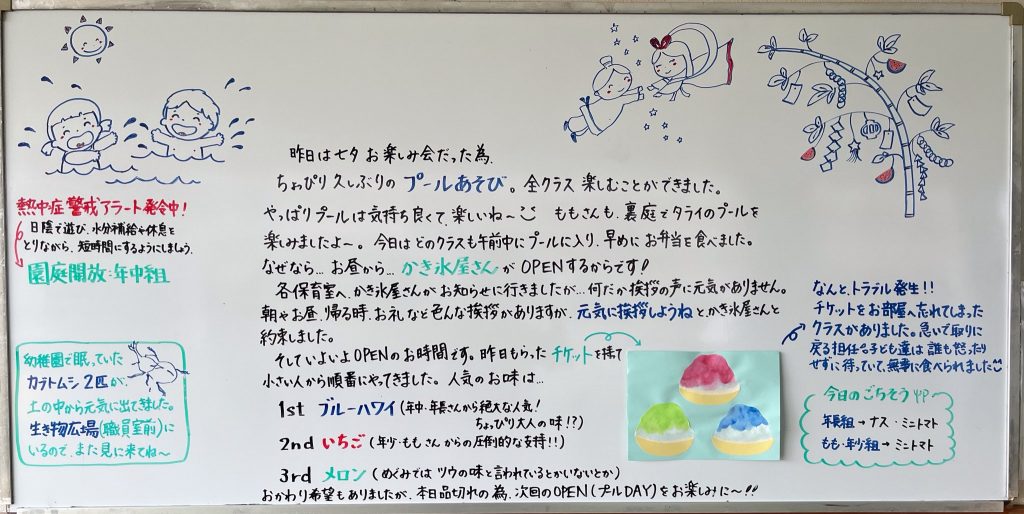 熱中症警戒アラート発令中!
日陰で遊び、水分補給や休息を
とりながら、短時間にするようにしましょう。
園庭開放:年中組
幼稚園で眠っていた
カブトムシ2匹が、
土の中から元気に出てきました。
生き物広場(職員室前)に
いるので、また見に来てね〜
昨日は七夕お楽しみ会だった為、
ちょっぴり久しぶりのプールあそび。全クラス楽しむことができました。
やっぱりプールは気持ち良くて、楽しいね〜 ももさんも、裏庭でタライのプールを
楽しみましたよ〜。今日はどのクラスも午前中にプールに入り、早めにお弁当を食べました。
なぜなら…お昼から…かき氷屋さんがOPENするからです!
各保育室へ、かき氷屋さんがお知らせに行きましたが…何だか挨拶の声に元気がありません。
朝やお昼、帰る時、お礼など色んな挨拶がありますが、元気に挨拶しようねとかき氷屋さんと
約束しました。
そしていよいよOPENのお時間です。昨日もらったチケットを持って
小さい人から順番にやってきました。人気のお味は…
1st ブルーハワイ(年中・年長さんから絶大な人気!
ちょっぴり大人の味!?)
2nd いちご(年少・ももさんからの圧倒的な支持!!)
3rd メロン(めぐみではツウの味と言われているとかいないとか)
おかわり希望もありましたが、本日品切れの為、次回のOPEN(プールDAY)をお楽しみに〜!!
なんと、トラブル発生!!
チケットをお部屋へ忘れてしまった
クラスがありました。急いで取りに
戻る担任…子ども達は誰も怒ったり
せずに待っていて、無事に食べられました
今日のごちそう
年長組→ナス・ミニトマト
もも・年少組→ミニトマト